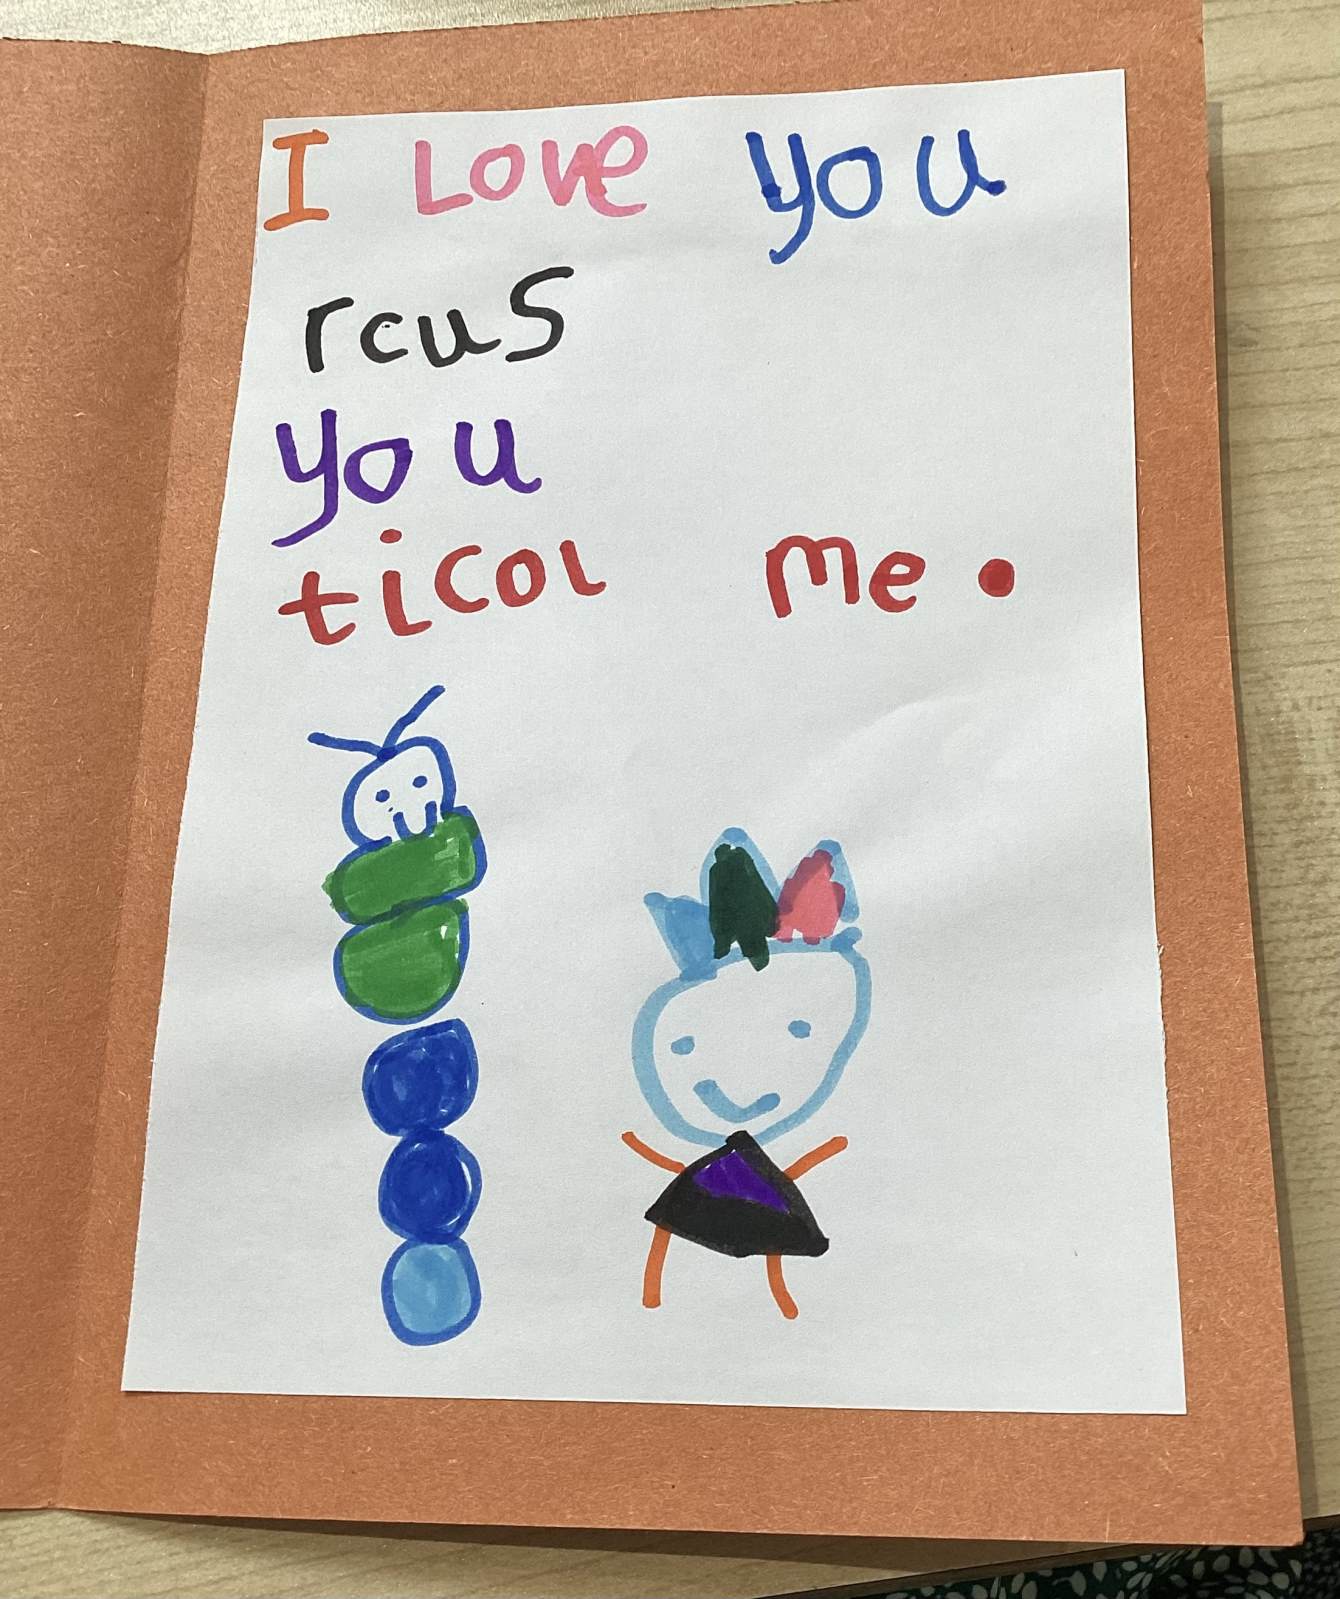 I Love you
rcus
you
ticol me.